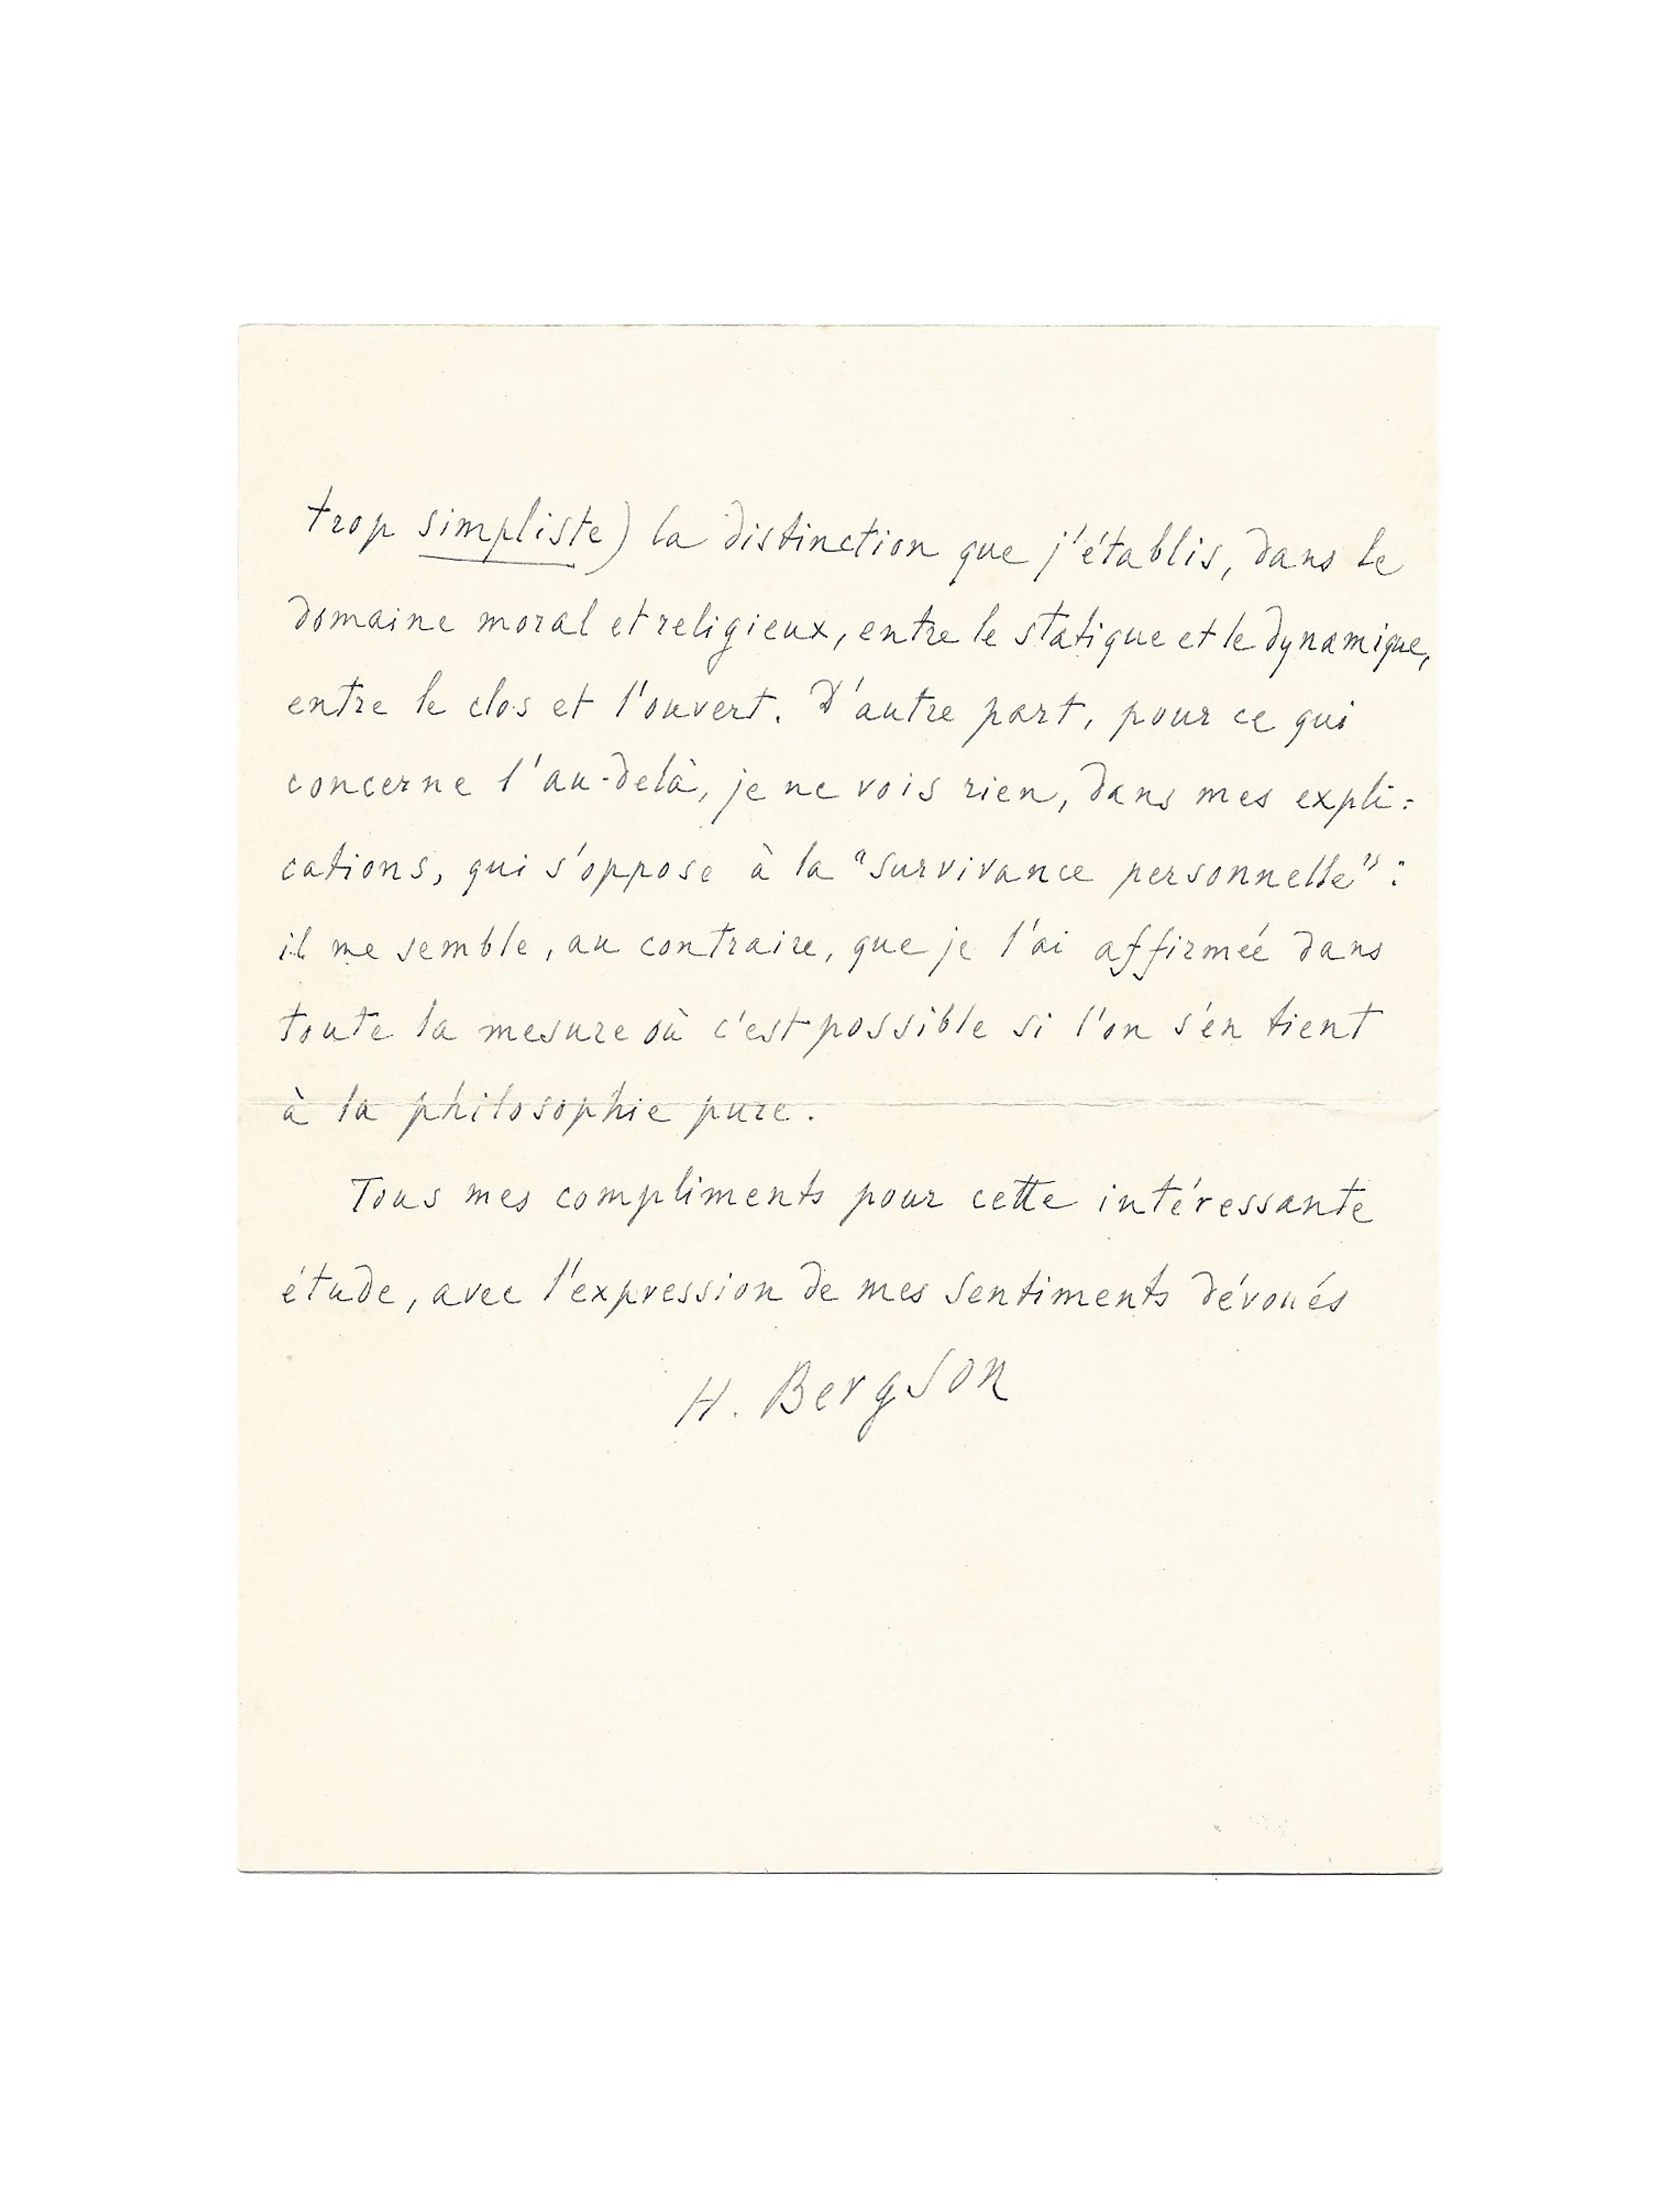 trop simpliste) la distinction que j'établis, dans le
domaine moral et religieux, entre le statique et le dynamique,
entre le clos et l'ouvert. D'autre part, pour ce qui
concerne l'au-delà, je ne vois rien, dans mes expli-
cations, qui s'oppose à la "survivance personnelle" :
il me semble, au contraire, que je l'ai affirmée dans
toute la mesure où c'est possible si l'on s'en tient
à la philosophie pure.
Tous mes compliments pour cette intéressante
étude, avec l'expression de mes sentiments dévoués
H. Bergson